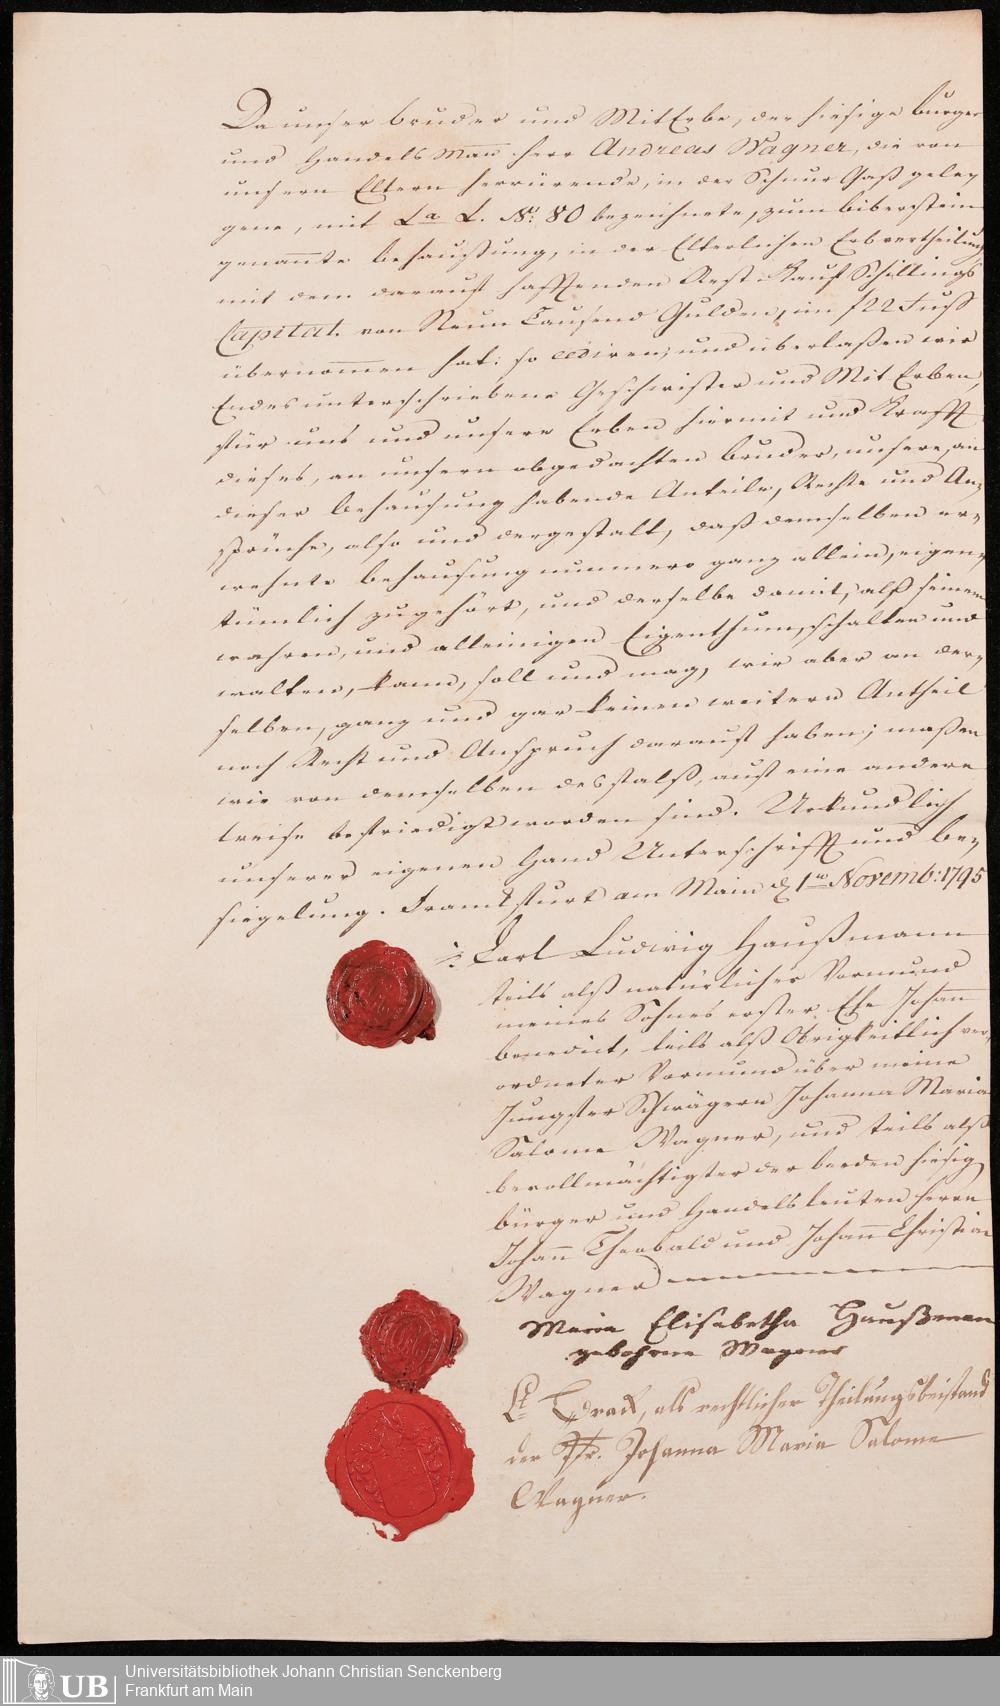 Da unser bruder und MitErbe, der hiesige burger
und Handels Mann herr Andreas Wagner, die von
unsern Eltern herrürende, in der Schnur Gaß gele⸗
gene, mit La. L. No. 80 bezeichnete, zum biberstein
genannte behaussung, in der Elterlichen Erbvertheilung
mit dem darauf hafftenden Rest-Kauf Schillings
Capital. von Neun Tausend Gulden, im f 22 Fuss
übernommen hat: so cediren, und überlaßen wir
Endesunterschriebene Geschwister und Mit Erben,
für uns und unsere Erben hiermit und Krafft
dieses, an unsern obgedachten bruder, unsere, an
dieser behausung habende Anteile, Rechte und An⸗
sprüche, also und dergestalt, daß demselben er⸗
wehnte behausung nunmero ganz allein, eigen⸗
tümlich zugehört, und derselbe damit, alß seinem
wahren, und alleinigen Eigenthum, schalten und
walten, kann, soll und mag, wir aber an der⸗
selben, ganz und gar keinen weitern Antheil
noch Recht und Anspruch darauf haben; maßen
wir von demselben desfalß, auf eine andere
weise befriedigt worden sind. Urkundlich
unserer eigenen Hand Unterschrifft und be⸗
siegelung. Frankfurt am Main d. 1ten Novemb: 1795
Carl Ludwig Haußmann
teils alß natürlicher Vormund
meines Sohnes erster Ehe Johann
benedict, teils alß Obrigkeitlich ver⸗
ordneter Vormund über meine
Jungster Schwägern Johanna Maria
Salome Wagner, und teils alß
bevollmächtigter der beeden hiesig
bürger und Handelsleuten herrn
Johann Theobald und Johann Christian
Wagner
Maria Elisabetha Haußmann
gebohrne Wagner
Lt. als rechtlicher Theilungsbeistand
der Jfr. Johanna Maria Salome
Wagner.
UB Universitätsbibliothek Johann Christian Senckenberg
Frankfurt am Main